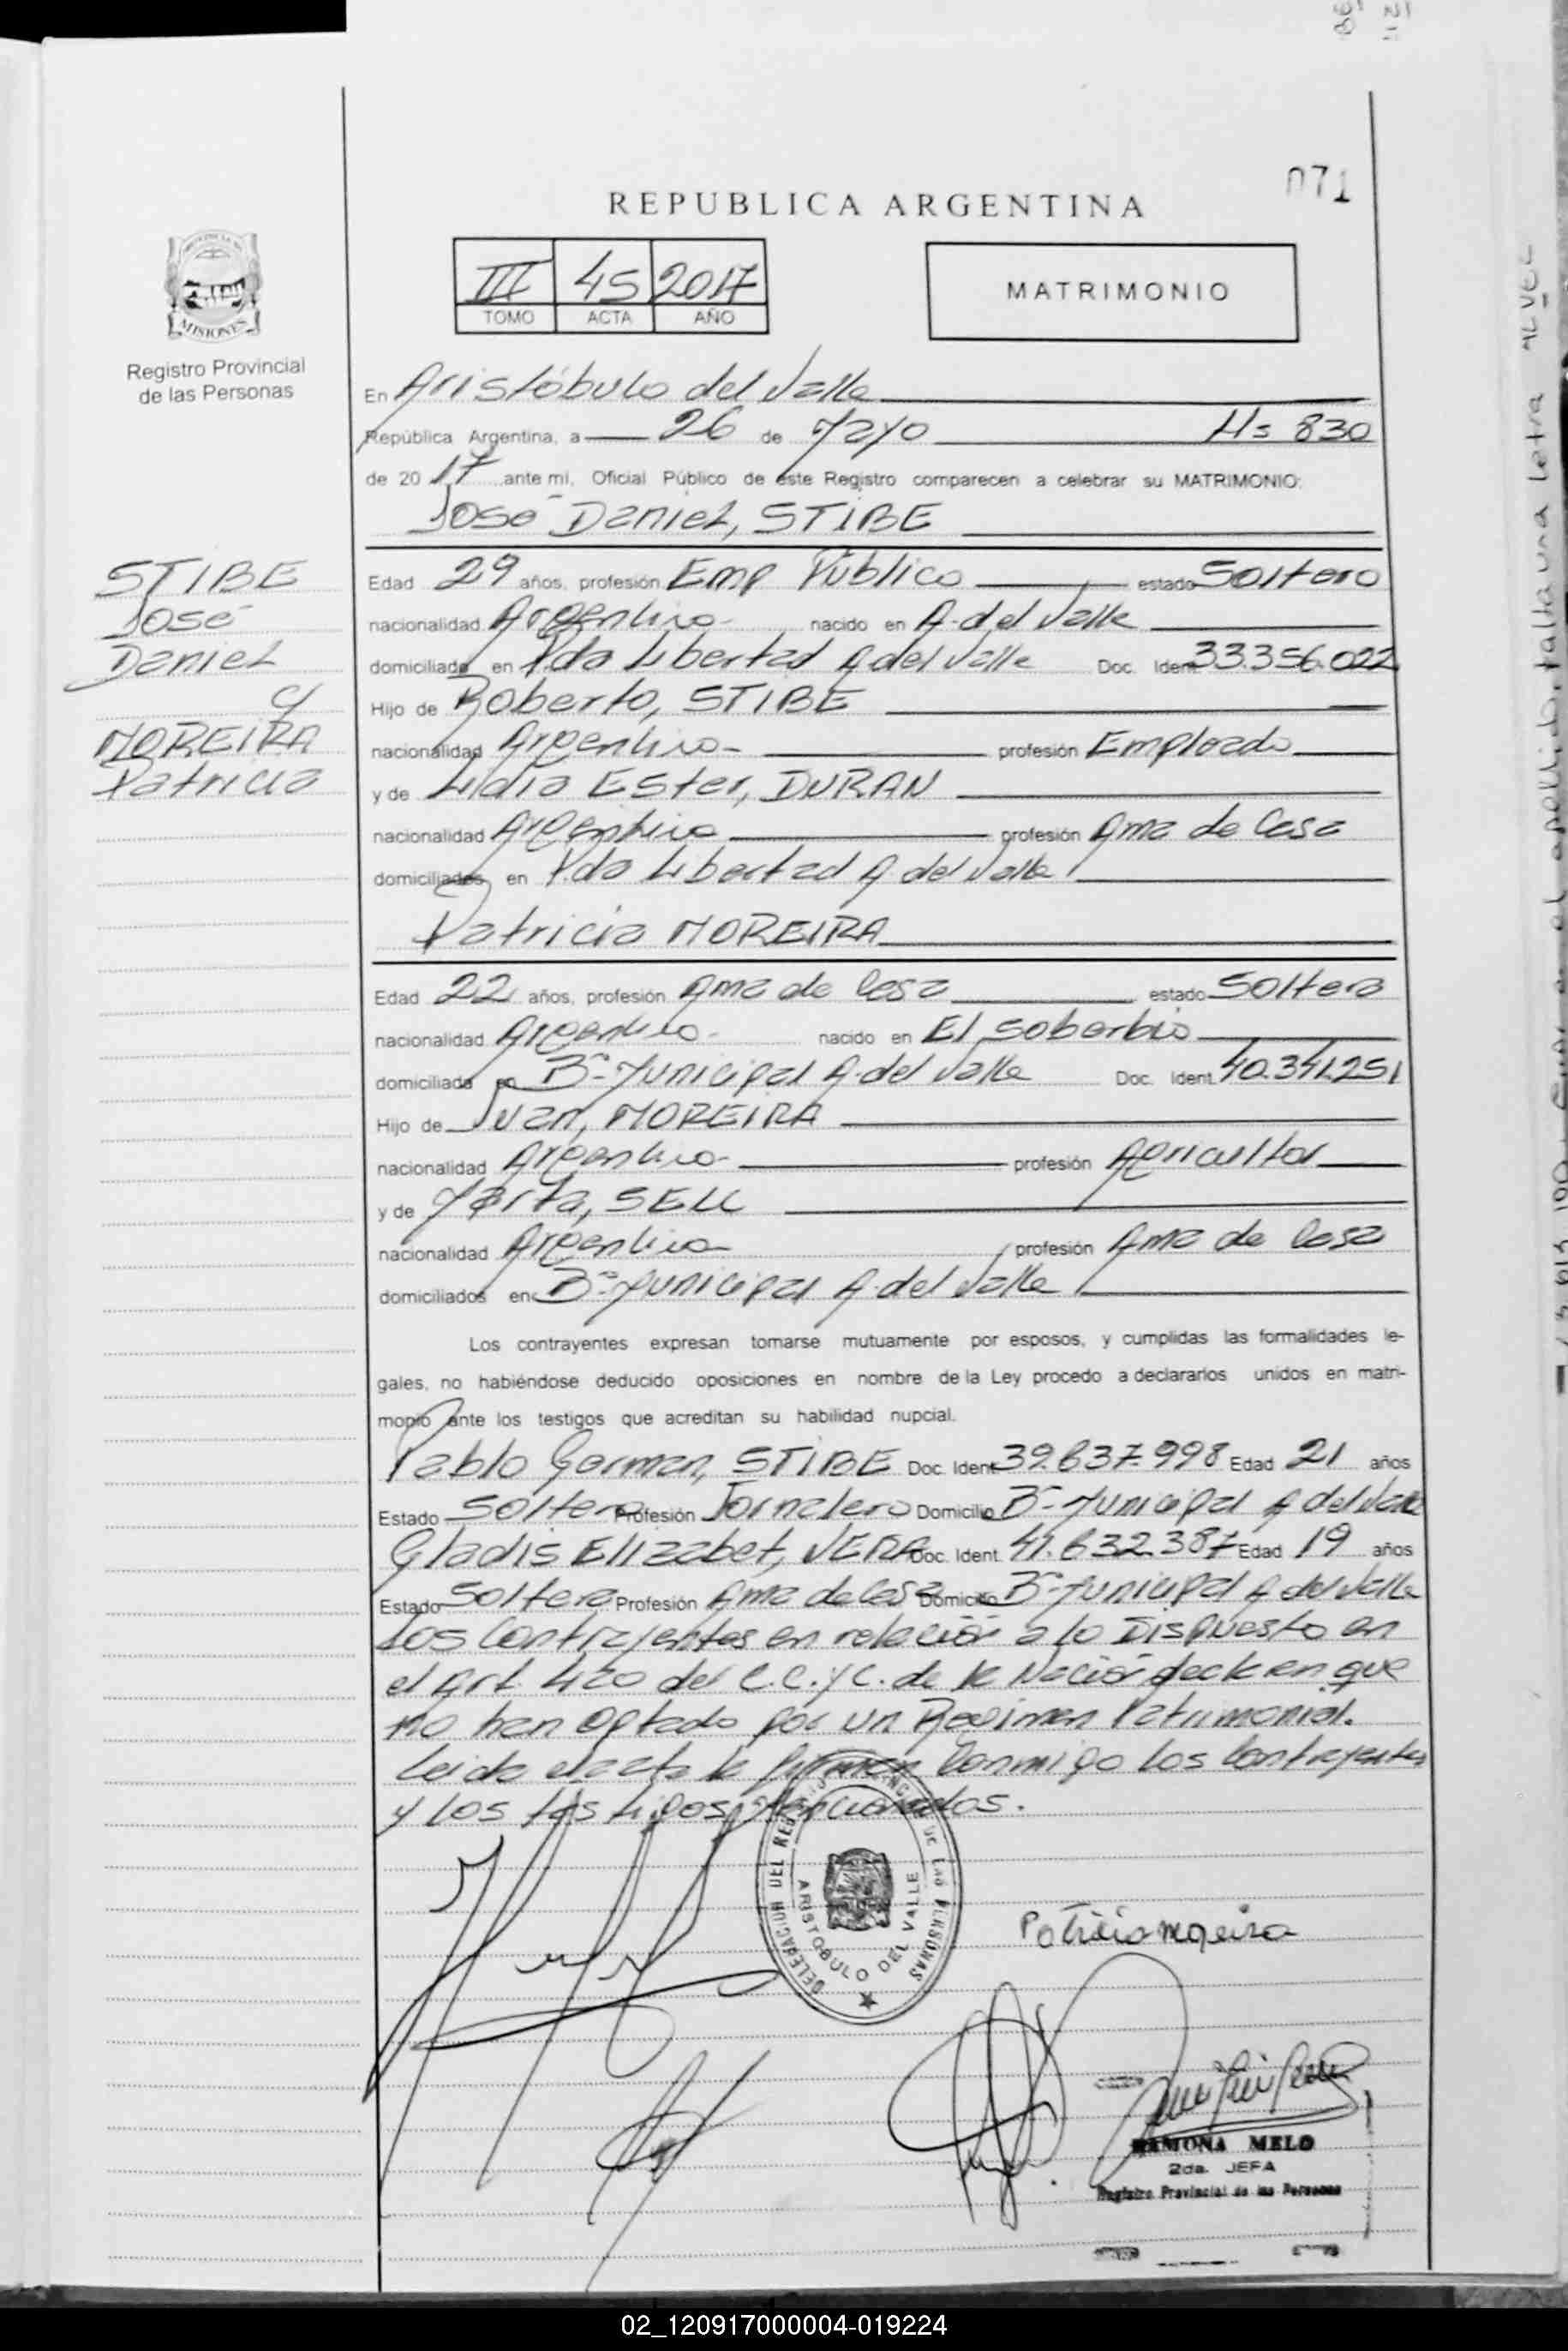 071
REPUBLICA ARGENTINA
III 45 2017
TOMO ACTA AÑO
MATRIMONIO
MISIONES
Registro Provincial
de las Personas
En Aristóbulo del Valle
República Argentina, a 26 de Mayo Hs 830
de 2017 ante mi, Oficial Público de este Registro comparecen a celebrar su MATRIMONIO:
José Daniel, STIBE
STIBE
José
Daniel
c/
MOREIRA
Patricia
Edad 29 años, profesión Emp Público estado Soltero
nacionalidad Argentina nacido en A. del Valle
domiciliado en Pdo Libertad A del Valle Doc. Ident. 33.356.022
Hijo de Roberto, STIBE
nacionalidad Argentina profesión Empleado
y de Lidia Ester, DURAN
nacionalidad Argentina profesión Ama de Casa
domiciliados en Pdo Libertad A. del Valle
Patricia MOREIRA
Edad 22 años, profesión Ama de Casa estado Soltera
nacionalidad Argentina nacido en El Soberbio
domiciliada en Bº Municipal A. del Valle Doc. Ident. 40.341.251
Hijo de Juan, MOREIRA
nacionalidad Argentina profesión Agricultor
y de Marta, SELL
nacionalidad Argentina profesión Ama de Casa
domiciliados en Bº Municipal A. del Valle
Los contrayentes expresan tomarse mutuamente por esposos, y cumplidas las formalidades le-
gales, no habiéndose deducido oposiciones en nombre de la Ley procedo a declararlos unidos en matri-
monio ante los testigos que acreditan su habilidad nupcial.
Pablo German, STIBE Doc. Ident. 39.637.998 Edad 21 años
Estado Soltero Profesión Jornalero Domicilio Bº Municipal A del Valle
Gladis Elizabet, VERA Doc. Ident. 41.632.387 Edad 19 años
Estado Soltera Profesión Ama de Casa Domicilio Bº Municipal A del Valle
Los Contrayentes en relación a lo Dispuesto en
el Art. 420 del C.C.y C. de la Nación declaran que
no han Optado por un Regimen Patrimonial.
Leida el acta la firman Conmigo los Contrayentes
y los testigos mencionados.
DELEGACION DEL REGISTRO PROVINCIAL DE LAS PERSONAS
ARISTOBULO DEL VALLE
Patricia Moreira
RAMONA MELO
2da. JEFA
Registro Provincial de las Personas
02_120917000004-019224